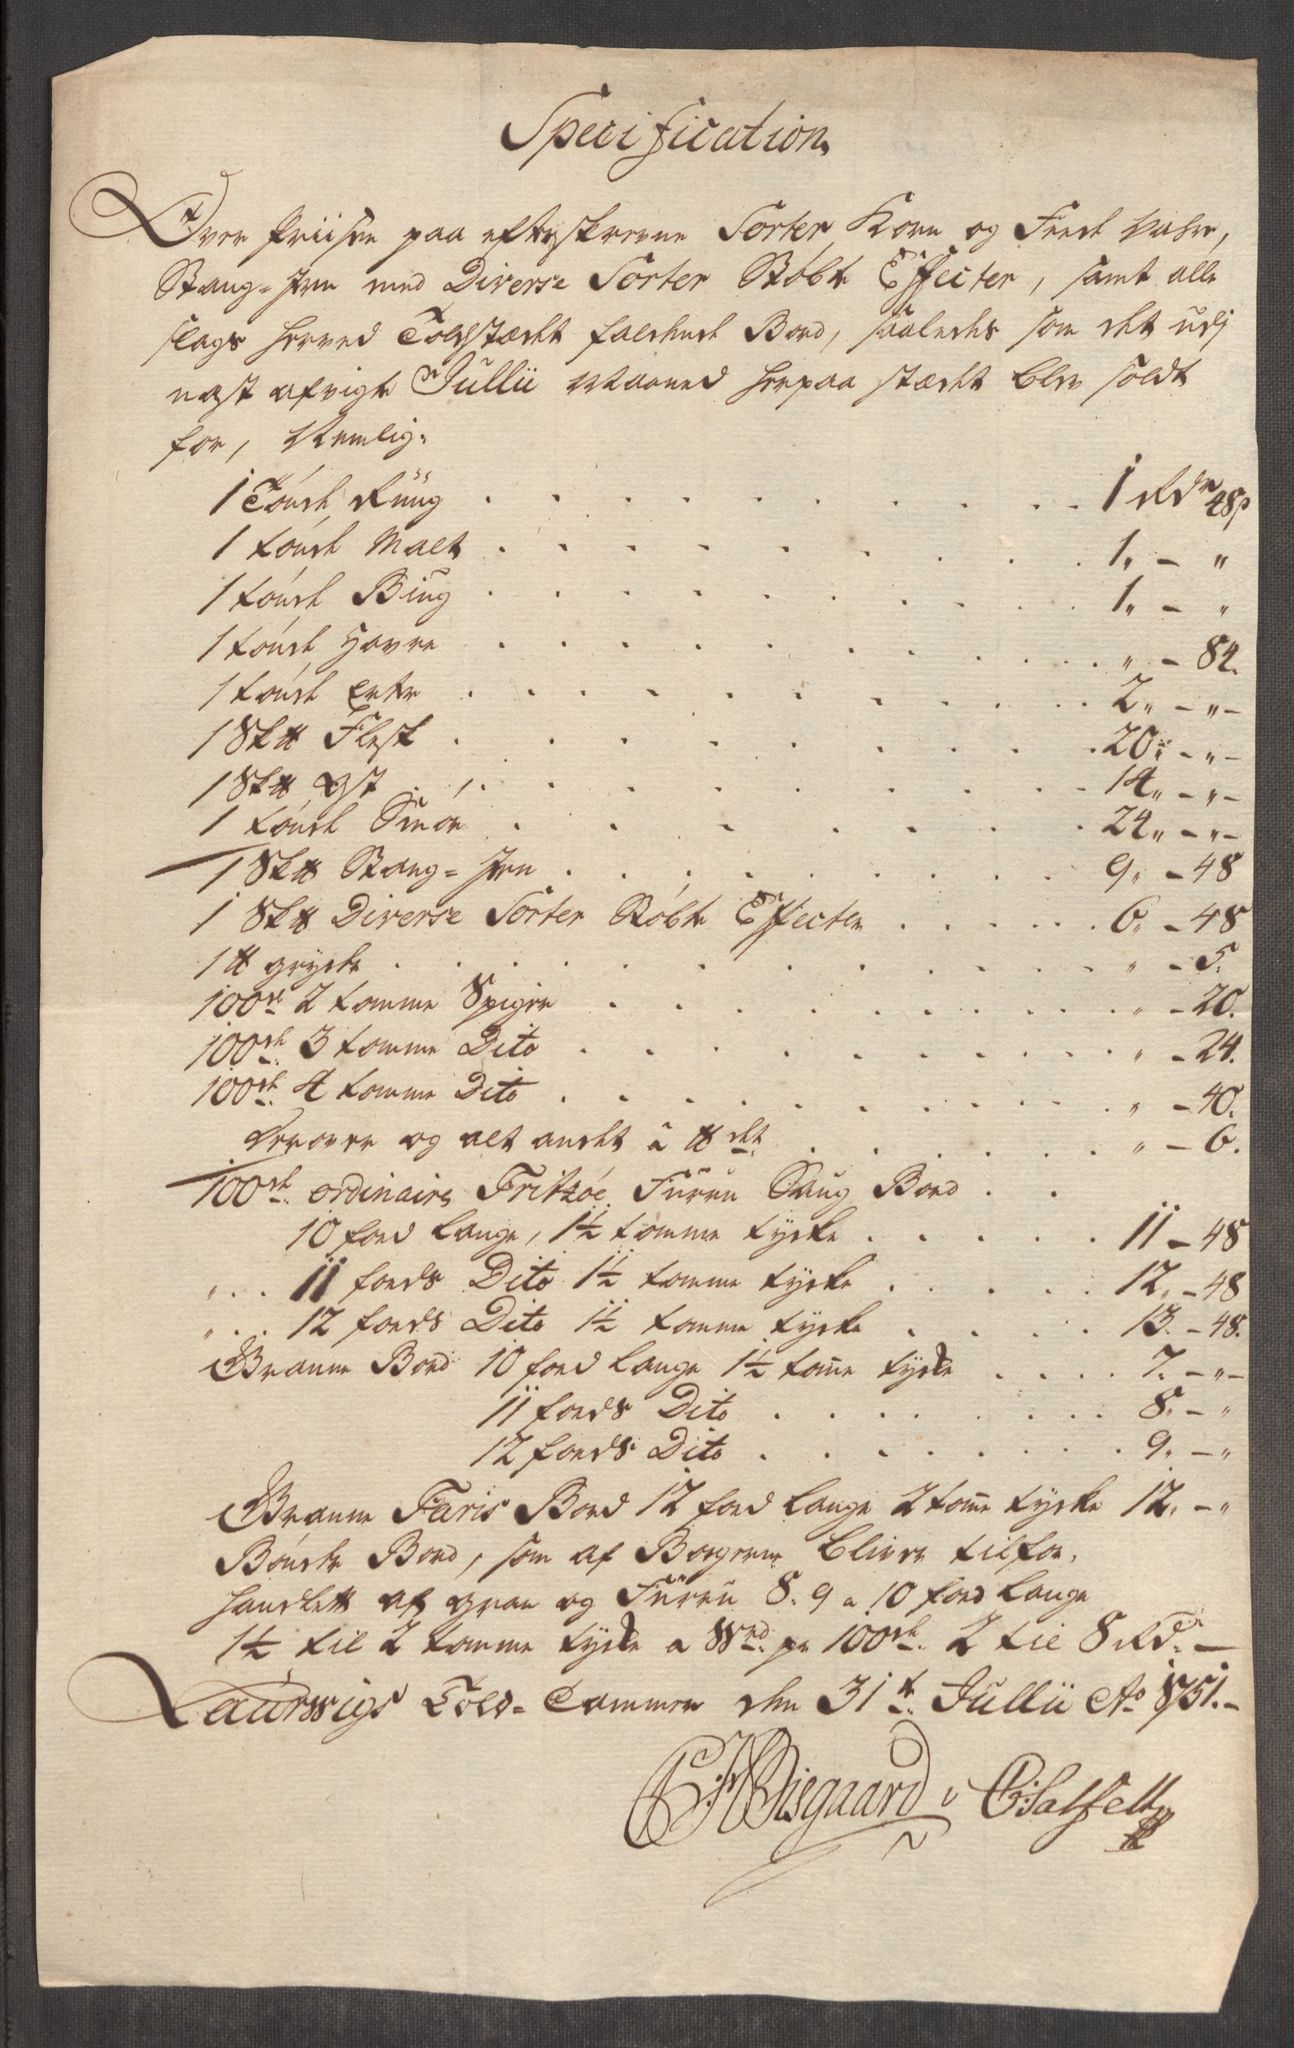 Specification
Over Priisen paa efterskrevne Sorter Korn og Feed Vahre,
Stang-Jern med Diverse Sorter Støbte Effecter, samt alle
slags herved Toldstædet faldende Bord, saaledes som det udj
næst afvigte Jullii Maaned her paa stædet blev soldt
for, Nemlig.
1 Tønde Rüug . . . 1 Rdr 48 s
1 tønde Malt . . . 1, - "
1 tønde Biug . . . 1, - "
1 tønde Havre . . . " - 84.
1 tønde Erter . . . 2, - " -
1 Sk℔ Flesk . . . 20, - " -
1 Sk℔ Ost . . . 14, - " -
1 tønde Smør . . . 24, - " -
1 Sk℔ Stang-Jern . . . 9, - 48
1 Sk℔ Diverse Sorter Støbte Effecter . . . 6, - 48
1 ℔ gryder . . . " - 5.
100de 2 tomme Spiger . . . " - 20.
100de 3 tomme Dito . . . " - 24.
100de 4 tomme Dito . . . " - 40.
og alt andet a ℔det . . . " - 6.
100de ordinaire Fritzøe Furru Saug Bord . .
10 fod lange, 1½ tomme tycke . . . 11 - 48
" . . 11 fods Dito 1½ tomme tycke . . . 12, - 48
" . . 12 fods Dito 1½ tomme tycke . . . 13. - 48.
Granne Bord 10 fod lange 1½ tome tycke . . . 7. - " -
11 fods Dito . . . 8. - "
12 fods Dito . . . 9, - "
Granne Faris Bord 12 fod lange 2 tome tycke 12, - "
Bønder Bord, som af Borgerne bliver tilfor,
handlett af gran og Furru 8. 9 a 10 fod lange
1½ til 2 tomme tycke a pr 100de 2 til 8 Rd. -
Laurwigs Told-Cammer den 31te Jullii Ao 1751. -
Wisgaard C: Salfelt